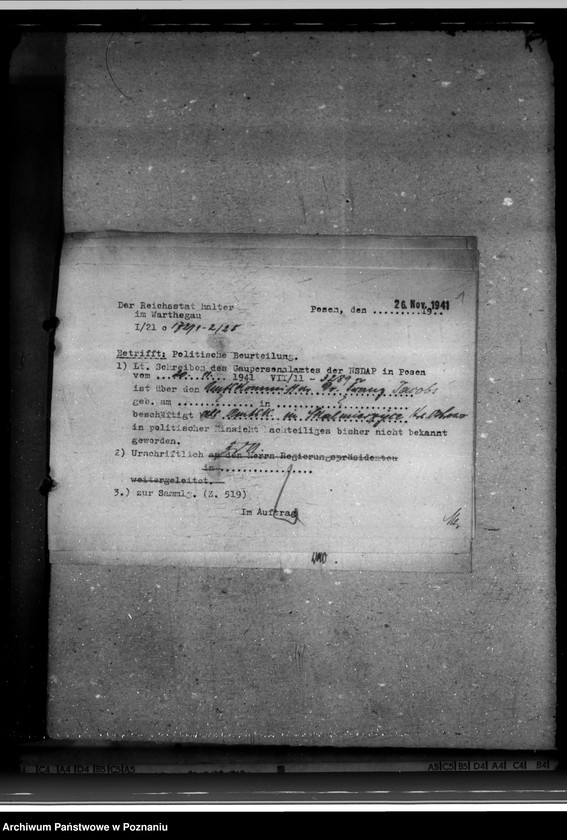 Der Reichsstatthalter
im Warthegau
I/21 c
Posen, den 26. Nov. 1941
19
Betrifft: Politische Beurteilung.
1) Lt. Schreiben des Gaupersonalamtes der NSDAP in Posen
vom 1941 VII/11 -
ist über den Amtskommissar Dr. Franz Jacobs
geb. am in
beschäftigt als in
in politischer Hinsicht Nachteiliges bisher nicht bekannt
geworden.
2) Urschriftlich an den Herrn Regierungspräsidenten
in
weitergeleitet.
3.) zur Sammlg. (Z. 519)
Im Auftrag
A5 C5 B5 D4 A4 C4 B4
Archiwum Państwowe w Poznaniu